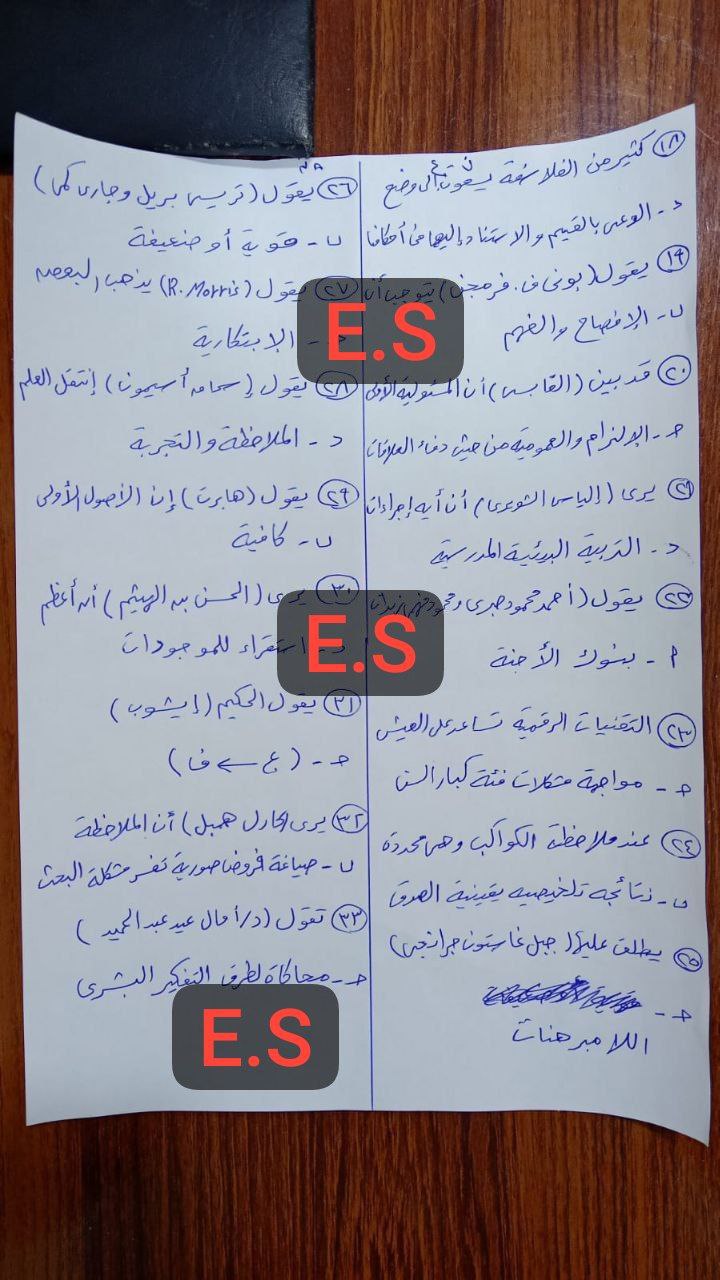 ١٨ كثير من الفلاسفة يسعون إلى وضع
د - الوعى بالقيم والاستناد إليها فى أحكامنا
١٩ يقول (بونى ف. فرمجن) يتوجب أن
ب - الإفصاح والفهم
٢٠ قد بين (القابسى) أن المسئولية الأولى
حـ - الإلزام والعمومية من حيث دفء العلاقات
٢١ يرى (إلياس الشويرى) أن أية إجراءات
د - التربية البيئية المدرسية
٢٢ يقول (أحمد محمود صبرى ومحمود فهمى زيدان
أ - بنوك الأجنة
٢٣ التقنيات الرقمية تساعد على العيش
حـ - مواجهة مشكلات فئة كبار السن
٢٤ عند ملاحظة الكواكب وهى محددة
ب - نتائجه تلخيصيه يقينية الصدق
٢٥ يطلق عليها (جيل غاستون جرانجى)
حـ -
اللامبرهنات
٢٦ يقول (تريسى بريل وجارى كمى)
ب - قوية أو ضعيفة
٢٧ يقول (R. Morris) يذهب البعض
الإبتكارية
٢٨ يقول (إسحاق أسيمون) إنتقل العلم
د - الملاحظة والتجربة
٢٩ يقول (هابرت) إن الأصول الأولى
ب - كافية
٣٠ يرى (الحسن بن الهيثم) أن أعظم
د - استقراء للموجودات
٣١ يقول الحكيم (إيشوب)
حـ - (ع ← ف)
٣٢ يرى (كارل همبل) أن الملاحظة
ب - صياغة فروض صورية تفسر مشكلة البحث
٣٣ تقول (د/أمال عيد عبد الحميد)
حـ - محاكاة لطرق التفكير البشرى
E.S
E.S
E.S